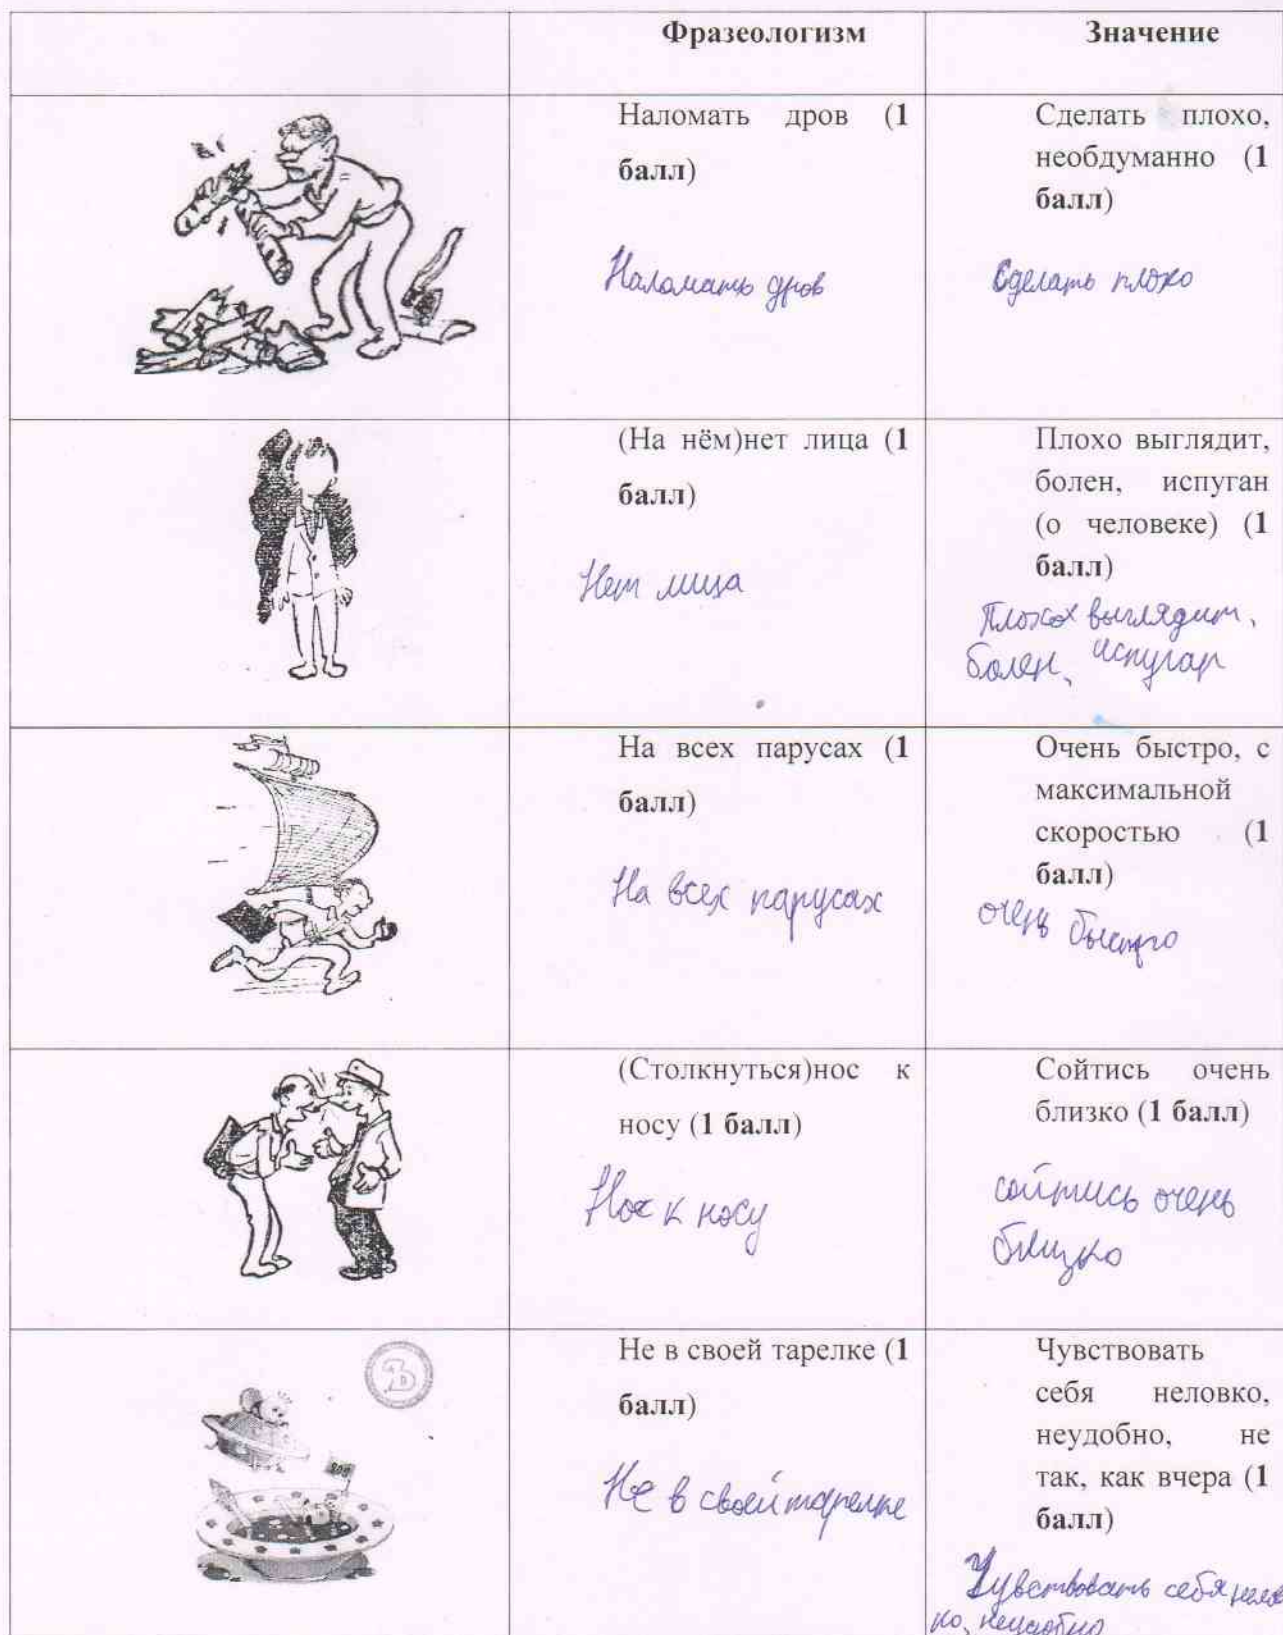 Фразеологизм
Значение
Наломать дров (1
балл)
Наломать дров
Сделать плохо,
необдуманно (1
балл)
Сделать плохо
(На нём)нет лица (1
балл)
Нет лица
Плохо выглядит,
болен, испуган
(о человеке) (1
балл)
выглядит,
болен,
На всех парусах (1
балл)
На всех парусах
Очень быстро, с
максимальной
скоростью (1
балл)
очень быстро
(Столкнуться)нос к
носу (1 балл)
Нос к носу
Сойтись очень
близко (1 балл)
сойтись очень
близко
SOS
Не в своей тарелке (1
балл)
Не в своей тарелке
Чувствовать
себя неловко,
неудобно, не
так, как вчера (1
балл)
Чувствовать себя нелов
ко, неудобно